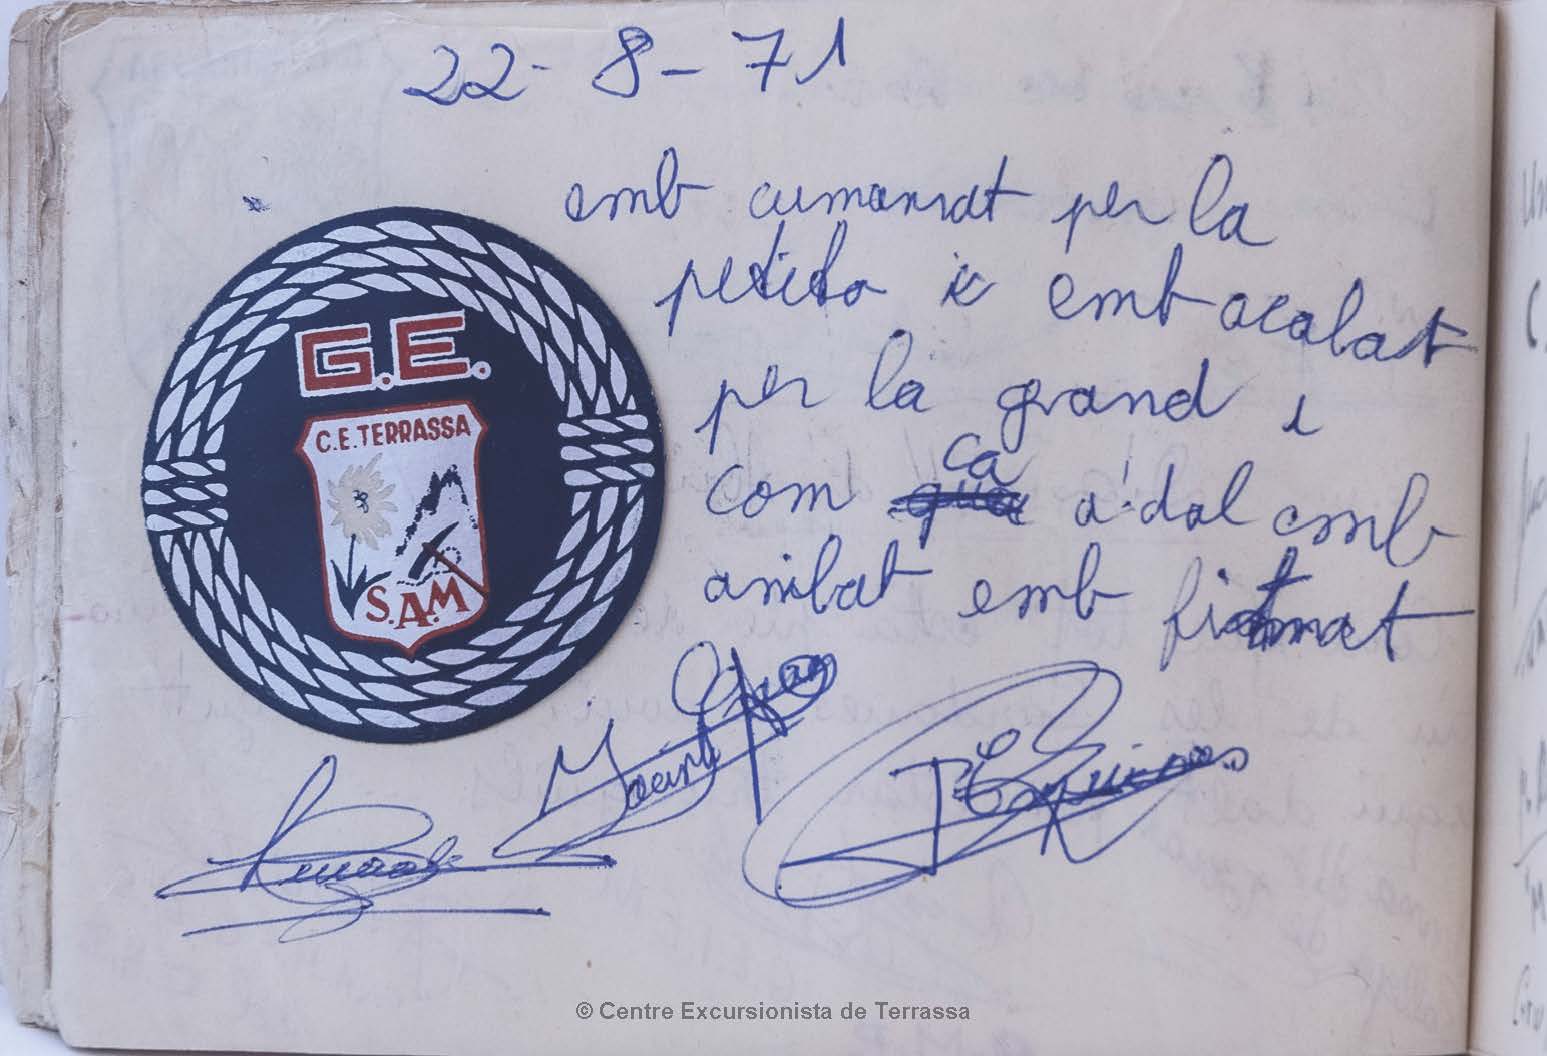 22-8-71
emb cumansat per la
petita i emb acabat
per la grand i
ca
com a'dal emb
arribat emb firmat
G.E.
C.E. TERRASSA
S.A.M
© Centre Excursionista de Terrassa